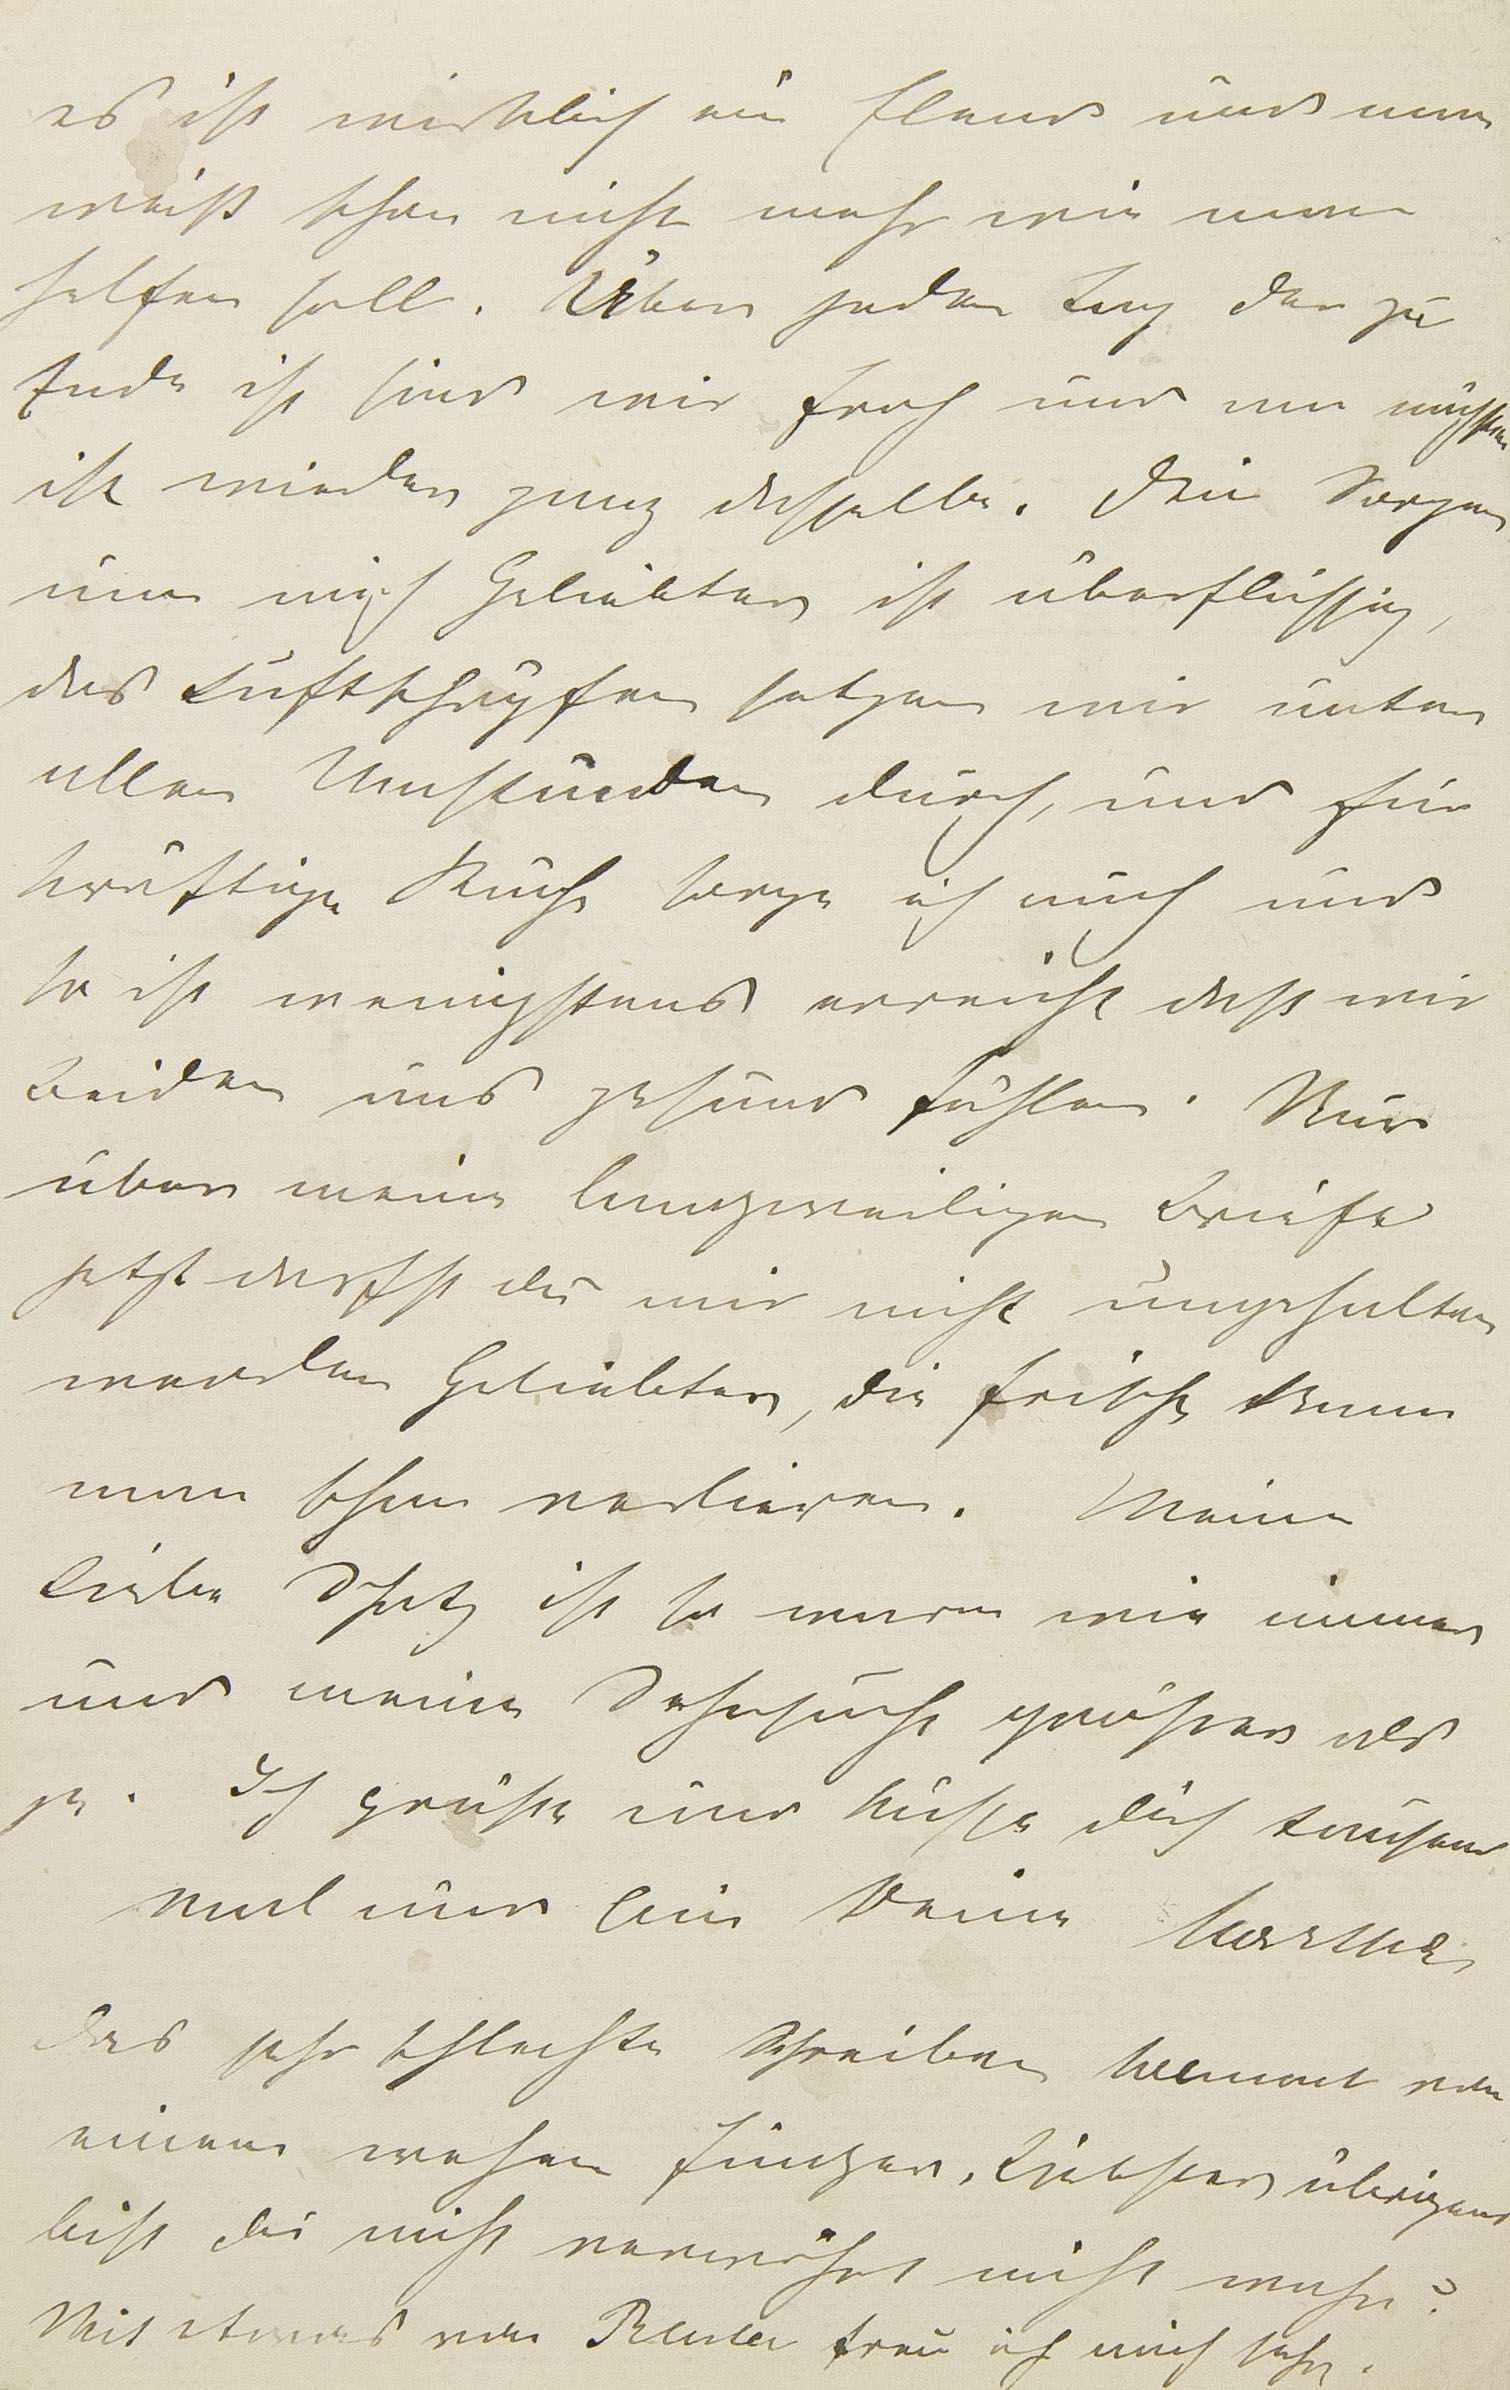 es ist wirklich ein Elend und man
weiß schon nicht mehr wie man
helfen soll. Über jeden Tag der zu
Ende ist sind wir froh und am nächsten
ist wieder ganz dasselbe. Dein Sorgen
um mich Geliebter ist überflüssig,
das Luftschöpfen setzen wir unter
allen Umständen durch, und für
kräftige Küche sorge ich auch und
so ist wenigstens erreicht daß wir
beiden uns gesund fühlen. Nur
über meine langweiligen Briefe
jetzt darfst du mir nicht ungehalten
werden Geliebter, die frische kann
man schon verlieren. Meine
Liebe Schatz ist so warm wie immer
und meine Sehnsucht größer als
je. Ich grüße und küsse dich tausend
mal und bin Deine Martha
das sehr schlechte Schreiben kommt von
einem wehen Finger. Liebster übrigens
bist du nicht verwöhnt nicht wahr?
Mit etwas von freu ich mich sehr.